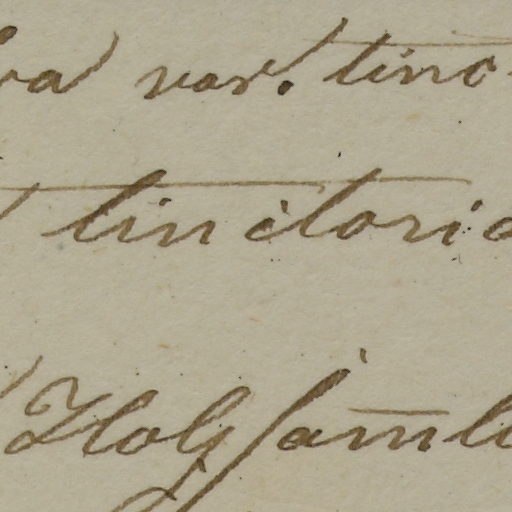 va var. tinc
tinctoria
Holzsam̅l